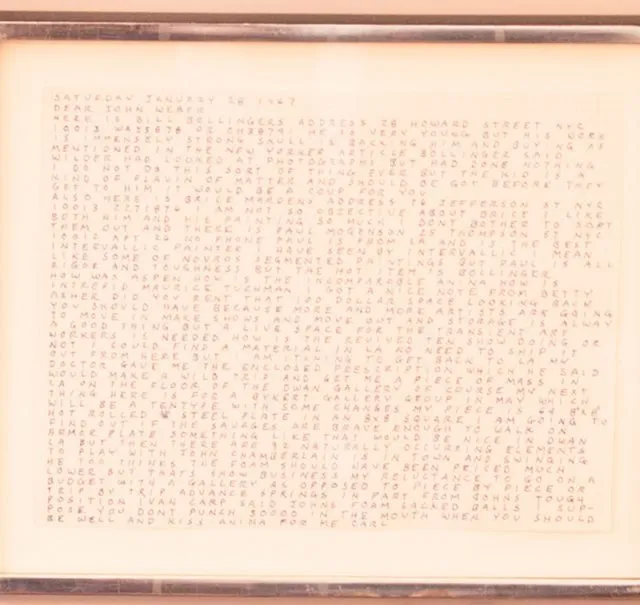 SATURDAY JANUARY 28 1967
DEAR JOHN WEBER
HERE IS BILL BOLLINGERS ADDRESS 28 HOWARD STREET NYC
10013 HE IS VERY YOUNG BUT HIS WORK
IS IMMENSELY STRONG SKULL IS BACKING HIM AND BUYING AS
MENTIONED IN THE NEW YORKER ARTICLE BOLLINGER SAID
WILDER HAD LOOKED AT PHOTOGRAPHS BUT HAD DONE NOTHING
I DO NOT DO THIS SORT OF THING EVER BUT THE KID IS A
KIND OF FLAVIN OF MATTER AND SHOULD BE GOT BEFORE THEY
GET TO HIM IT WOULD BE A COUP FOR YOU
ALSO HERE IS BRICE MARDENS ADDRESS 76 JEFFERSON ST NYC
10013 2271876 I AM NOT SO OBJECTIVE ABOUT BRICE I LIKE
BOTH HIM AND HIS PAINTING SO MUCH I DONT BOTHER TO SORT
THEM OUT AND THERE IS PAUL MOGENSON THOMPSON ST NYC
10012 APT 26 NO PHONE PAUL IS FROM LA AND IS THE BEST
INTERVALLIC PAINTER I HAVE SEEN BY INTERVALLIC I MEAN
LIKE SOME OF NOVROS SEGMENTED PAINTINGS BUT PAUL IS ALL
RIGOR AND TOUGHNESS BUT THE HOT ITEM IS BOLLINGER
HOW WAS ASPEN HOW IS THE INCOMPARABLE ANINA HOW IS
INTREPID MAURICE TUCHMAN I GOT A NICE NOTE FROM BETTY
ASHER DID YOU RENT THAT 100 DOLLAR SPACE LOOKING BACK
YOU SHOULD HAVE BECAUSE MORE AND MORE ARTISTS ARE GOING
TO MOVE IN MAKE SHOWS AND MOVE OUT AND STORAGE IS ALWAY
A GOOD THING BUT A LIVE SPACE FOR THE TRANSIENT ART
WORKERS IS NEEDED HOW IS THE REVIVED TEN SHOW DOING OR
NOT I COULD FIND A MATERIAL IN LA NO NEED TO SHIP IT
OUT FROM HERE BUT I AM ITCHING TO GET BACK TO LA MY
DOCTOR GAVE ME THE ENCLOSED PRESCRIPTION WHICH HE SAID
WOULD MAKE A WILD TRIP AND GET ME A PIECE OF MASS IN
LA ON THE FLOOR OF THE DWAN GALLERY OF COURSE MY NEXT
THING HERE IS FOR A BYKERT GALLERY GROUP IN MAY WHICH
WILL BE LATENTYVES WITH SOME CHANGES MY PIECE IS 64
HOT ROLLED STEEL PLATE IN AN 8X8 SQUARE I AM GOING TO
FIND OUT IF THE SAVAGES ARE BRAVE ENOUGH TO WALK ON
ARMOR PLATE SOMETHING LIKE THAT WOULD BE NICE IN DWAN
LA BUT THEN THERE ARE 92 NATURALLY OCCURING ELEMENTS
TO PLAY WITH JOHN CHAMBERLAIN IS IN TOWN AND SINGING
HE TOO THINKS THE FOAM SHOULD HAVE BEEN PRICED MUCH
LOWER BUT THATS SHOW BUSINESS MY RELUCTANCE TO GO ON A
BUDGET WITH A GALLERY AS OPPOSED TO PIECE BY PIECE OR
TRIP BY TRIP ADVANCE SPRINGS IN PART FROM JOHNS TOUGH
POSITION IVAN CARP SAID JOHNS FOAM LACKED BALLS I SUP-
POSE YOU DONT PUNCH IN THE MOUTH WHEN YOU SHOULD
BE WELL AND KISS ANINA FOR ME CARL